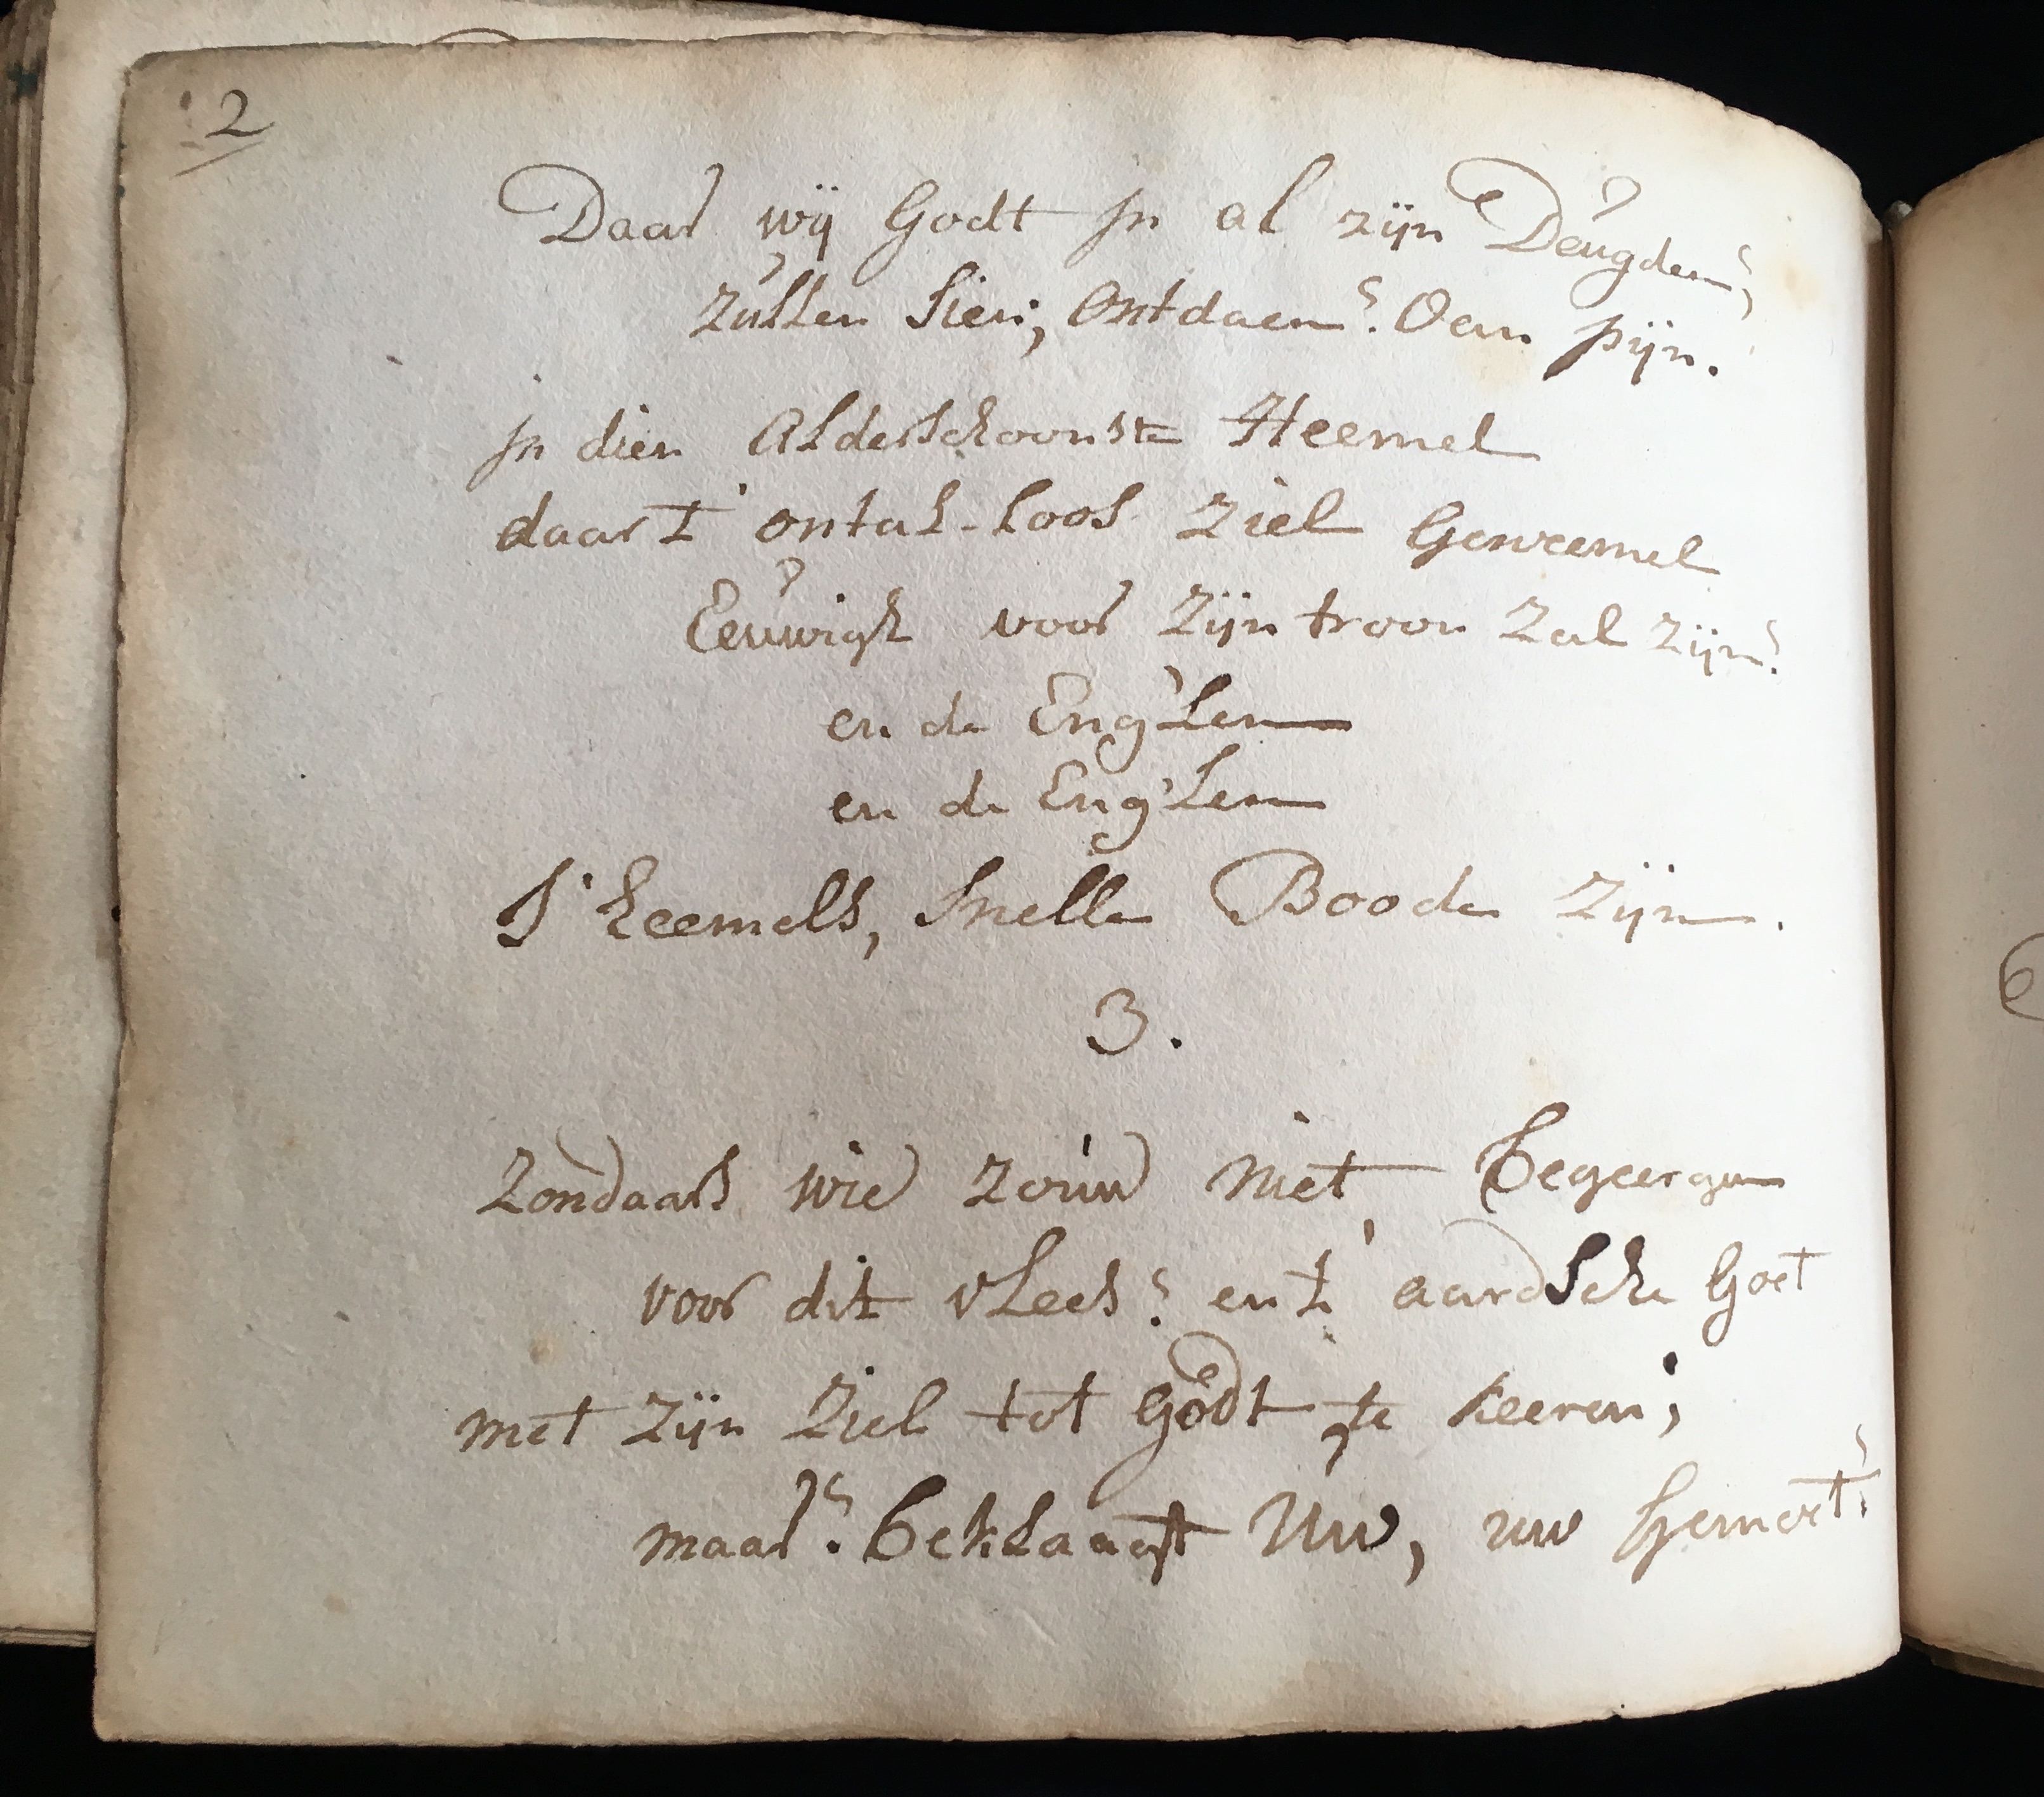 2
Daar wij Godt in al zijn Deugden,
zullen Sien; Ontdaen? Van pijn.
in dien Alderschoonste Heemel
daar t' ontal-loos ziel Geweemel
Eeuwigh voor zijn troon zal zijn?
en de Eng'len
en de Eng'len
S' heemels, Snelle Boode zijn.
3.
Zondaars wie zouw niet begeeren
voor dit vlees? en t' aardsche Goet
met zijn ziel tot Godt te keeren;
maar? beklaagt Uw, uw gemoet?